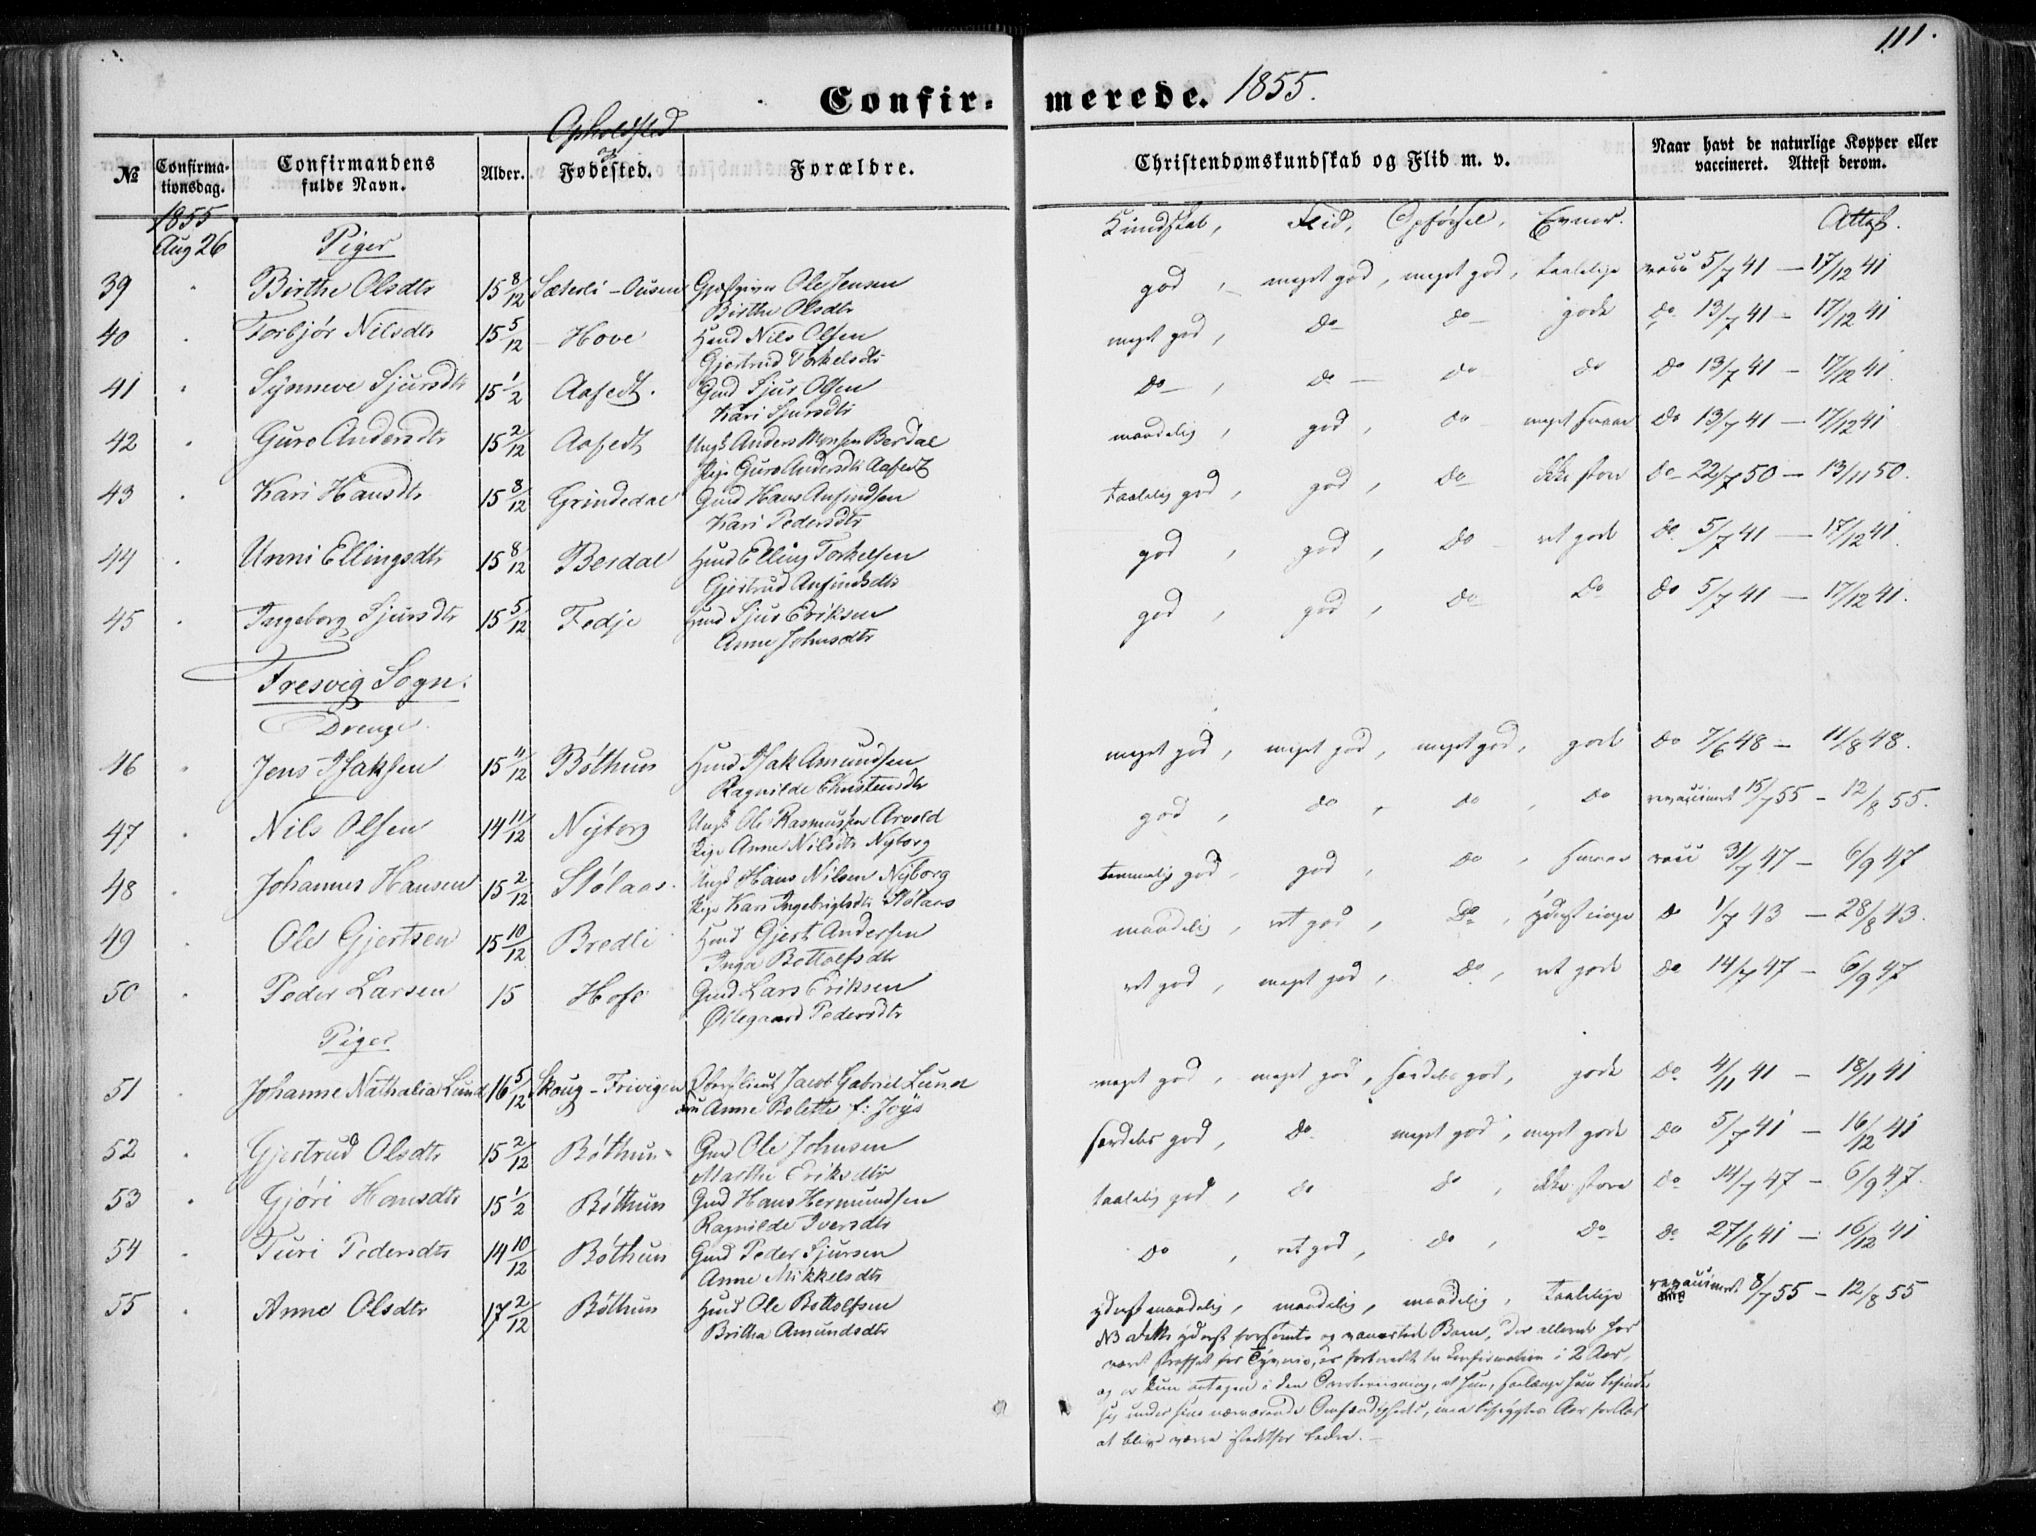 111.
Confirmerede. 1855.
Opholdsted og
№ Confirmationsdag. Confirmandens fulde Navn. Alder. Fødested. Forældre. Christendomskundskab og Flid m. v. Naar havt de naturlige Kopper eller vaccineret. Attest derom.
1855
Aug 26 Piger Kundskab, Flid, Opførsel, Evner. Attest.
39 " Birthe Olsdtr 15 8/12 Ole Jensen god, meget god, meget god, taalelige vacc 5/7 41 — 17/12 41
Birthe Olsdtr
40 " Torbjør Nilsdtr 15 5/12 Hove Nils Olsen meget god, do do gode do 13/7 41 — 17/12 41
Gjertrud Torkelsdtr
41 " Synneve Sjursdtr 15 1/2 Aafedt. Gmd Sjur Olsen do, do do do do 13/7 41 — 17/12 41.
Kari Sjursdtr
42 " Guro Andersdtr 15 2/12 Aafedt Ungk Anders Monsen Berdal maadelig, god, do meget smaae do 13/7 41 — 17/12 41
Pige Guro Andersdtr Aafedt
43 " Kari Hansdtr 15 8/12 Grindedal Gmd Hans Anfindsen taalelig god, god, do ikke store do 22/7 50 — 13/11 50.
Kari Pedersdtr
44 " Unni Ellingsdtr 15 8/12 Berdal Elling Torkelsen god, god, do ret gode do 5/7 41 — 17/12 41.
Gjertrud Anfindsdtr
45 " Ingeborg Sjursdtr 15 5/12 Fedje Sjur Eriksen god, god, do do do 5/7 41 — 17/12 41.
Anne Johnsdtr
Fresvig Sogn.
Drenge.
46 " Jens Isaksen 15 11/12 Bøthun Isak Amundsen meget god, meget god, meget god, gode do 7/6 48 — 11/8 48.
Ragnilde Christensdtr
47 " Nils Olsen 14 11/12 Nyborg Ungk Ole Rasmussen Arvold god, do, do, do revaccineret 15/7 55 — 12/8 55.
Pige Anne Nilsdtr Nyborg
48 " Johannes Hansen 15 2/12 Stølaas. Ungk Hans Nilsen Nyborg temmelig god, god, do, smaae vacc 31/7 47 — 6/9 47
Pige Kari Ingebrigtsdtr Stølaas
49 " Ole Gjertsen 15 10/12 Bredli Gjert Andersen maadelig, ret god, do, yderst ringe do 1/7 43 — 28/8 43.
Inga Bottolfsdtr
50 " Peder Larsen 15 Hofe Gmd Lars Eriksen ret god, meget god, do, ret gode do 14/7 47 — 6/9 47
Øllegaard Pedersdtr
Piger
51 " Johanne Nathalia Lund 16 5/12 Skoug - Jacob Gabriel Lund meget god, meget god, særdeles god, gode do 4/11 41 — 18/11 41
Anne Bolette f: Joys
52 " Gjertrud Olsdtr 15 2/12 Bøthun Gmd Ole Johnsen særdeles god, do meget god, meget gode do 5/7 41 — 16/12 41
Marthe Eriksdtr
53 " Gjøri Hansdtr 15 1/2 Bøthun Gmd Hans Hermundsen taalelig god, do do, ikke store do 14/7 47 — 6/9 47.
Ragnilde Iversdtr
54 " Turi Pedersdtr 14 10/12 Bøthun Gmd Peder Sjursen do, ret god, do, do do 27/6 41 — 16/12 41
Anne Mikkelsdtr
55 " Anne Olsdtr 17 2/12 Bøthun Ole Bottolfsen yderst maadelig, maadelig, maadelig, taalelige revaccineret 8/7 55 — 12/8 55
Britha Amundsdtr
NB dette yderst forsømte og vanartede Barn, der allerede har
været straffet for Tyverie, er fornegtet Confirmation i 2 Aar,
og er kun antagen i den Overbeviisning, at hun, saalænge hun befinder
sig under sine nærværende Omstændigheder, Aar for Aar
at blive værre istedetfor bedre.